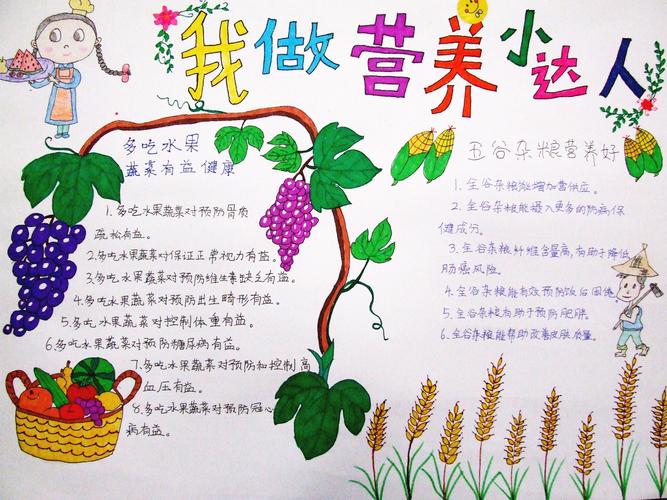 我做营养小达人
多吃水果
蔬菜有益健康
1.多吃水果蔬菜对预防骨质
疏松有益。
2.多吃水果蔬菜对保证正常视力有益。
3.多吃水果蔬菜对预防维生素缺乏有益。
4.多吃水果蔬菜对预防出生畸形有益。
5.多吃水果蔬菜对控制体重有益。
6.多吃水果蔬菜对预防糖尿病有益。
7.多吃水果蔬菜对预防和控制高
血压有益。
8.多吃水果蔬菜对预防冠心
病有益。
五谷杂粮营养好
1.全谷杂粮能增加营供应。
2.全谷杂粮能摄入更多的防病保
健成分。
3.全谷杂粮纤维含量高,有助于降低
肠癌风险。
4.全谷杂粮能有效预防饭后困倦。
5.全谷杂粮有助于预防肥胖。
6.全谷杂粮能帮助改善皮肤质量。